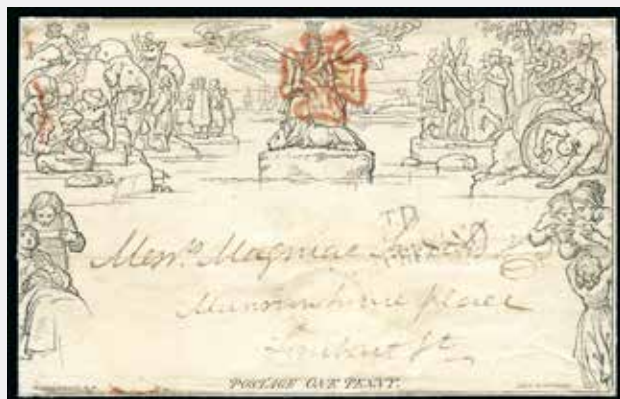 T.P
Messrs Magniac Smith
Mansion house place
Lombard St.
POSTAGE ONE PENNY.